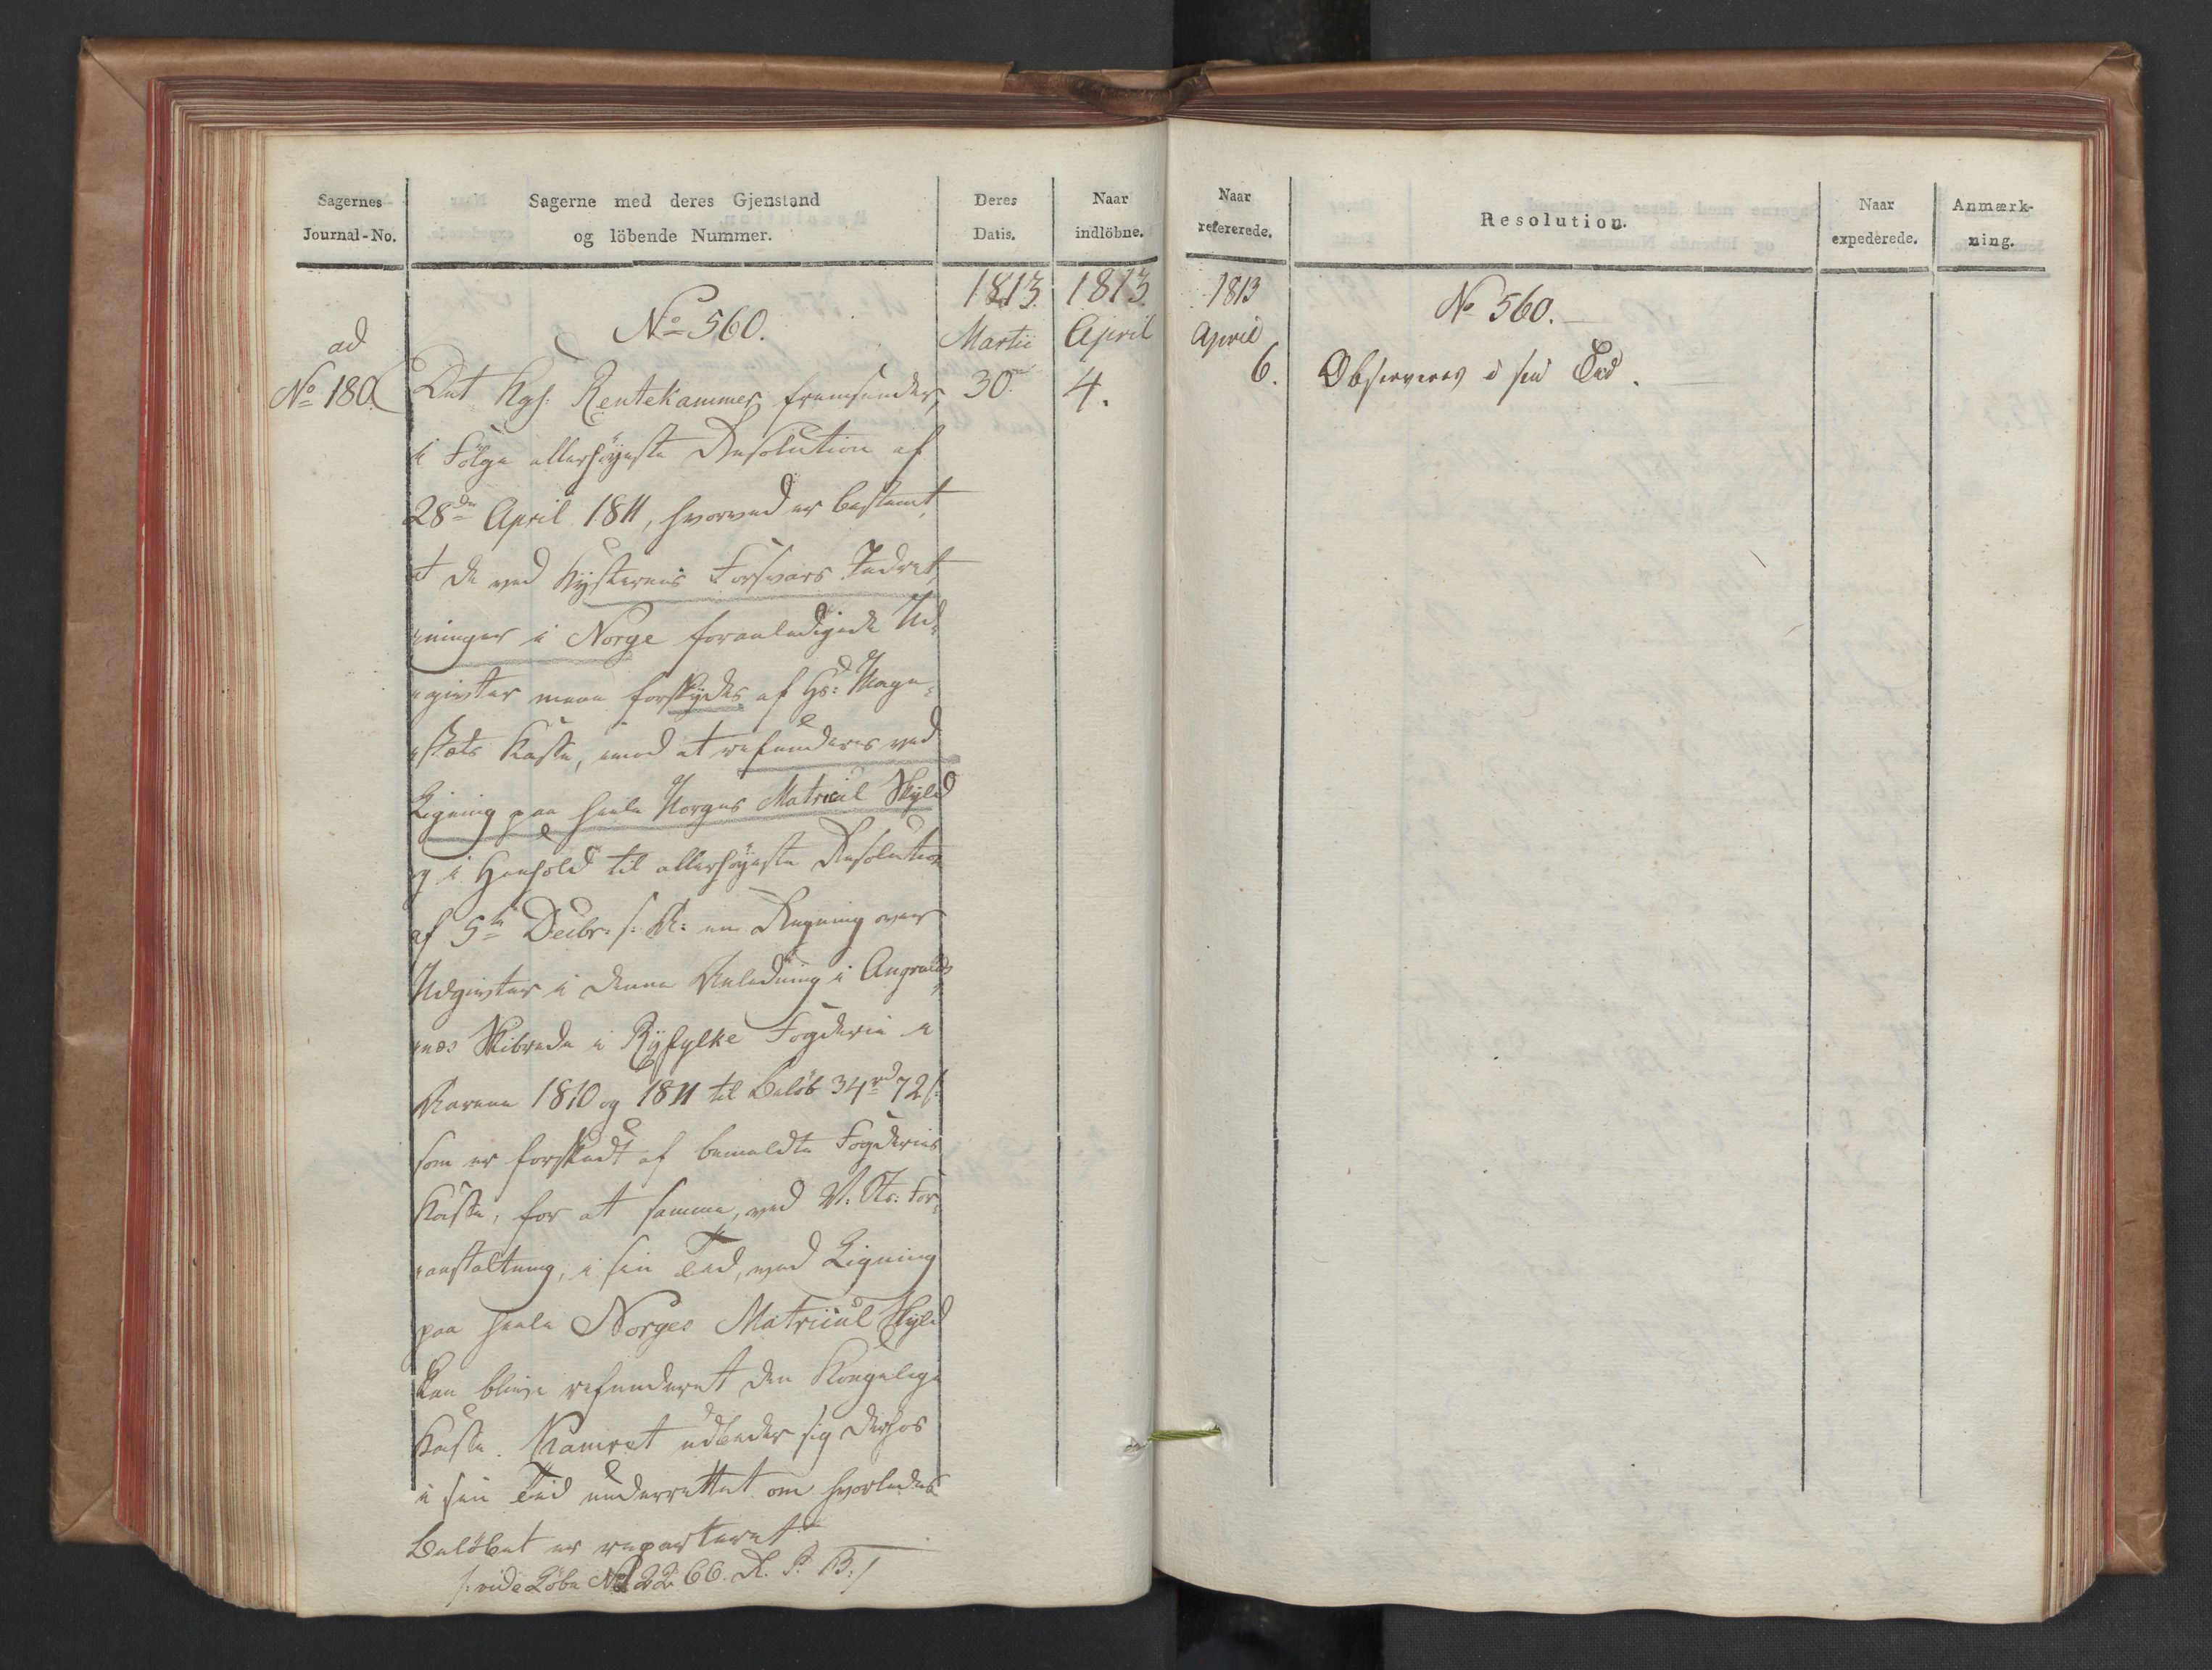 Sagernes
Journal-No.
Sagerne med deres Gjenstand
og löbende Nummer.
Deres
Datis.
Naar
indlöbne.
ad
No 180.
No 560.
1813.
Martii
30
1813.
April
4.
Det Kgl: Rentekammer fremsender,
i Følge allerhøyeste Resolution af
28de April 1811, hvorved er bestemt,
at de ved Kysternes Forsvars Indret,
ninger i Norge foranledigede Ud,
givter maae forskydes af Hs: Maye,
stæts Kasse, imod at refunderes ved
Ligning paa heele Norges Matricul Skyld
og i Henhold til allerhøyeste Resolution
af 5te Decbr: f: A: en Regning over
Udgivter i denne Anledning i Augvalds,
næs Skibrede i Ryfylke Fogderie i
Aarene 1810 og 1811 til Beløb 34rd 72 s:
som er forskudt af bemeldte Fogderies
Kasse, for at samme, ved V. Sts: For,
anstaltning, i sin Tid, ved Ligning
paa heele Norges Matricul Skyld
kan blive refunderet den Kongelige
Kasse. Kamret udbeder sig derhos
i sin Tid underrettet om hvorledes
Beløbet er reparteret
/: vide Löbe No 2266. R. P. B:/
Naar
refererede.
Resolution.
Naar
expederede.
Anmærk-
ning.
1813
April
6.
No 560.
Observeres i sin Tid.